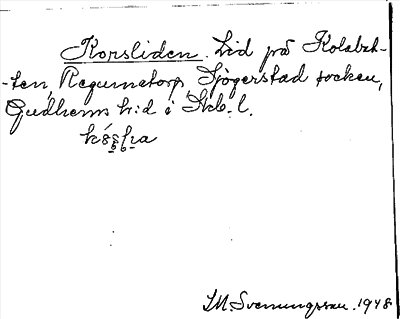 Korsliden. Lid på Kolabot-
-ten, Regumatorp, Sjögerstad socken,
Gudhems h:d i Skb. l.
SM. Svenungsson. 1948